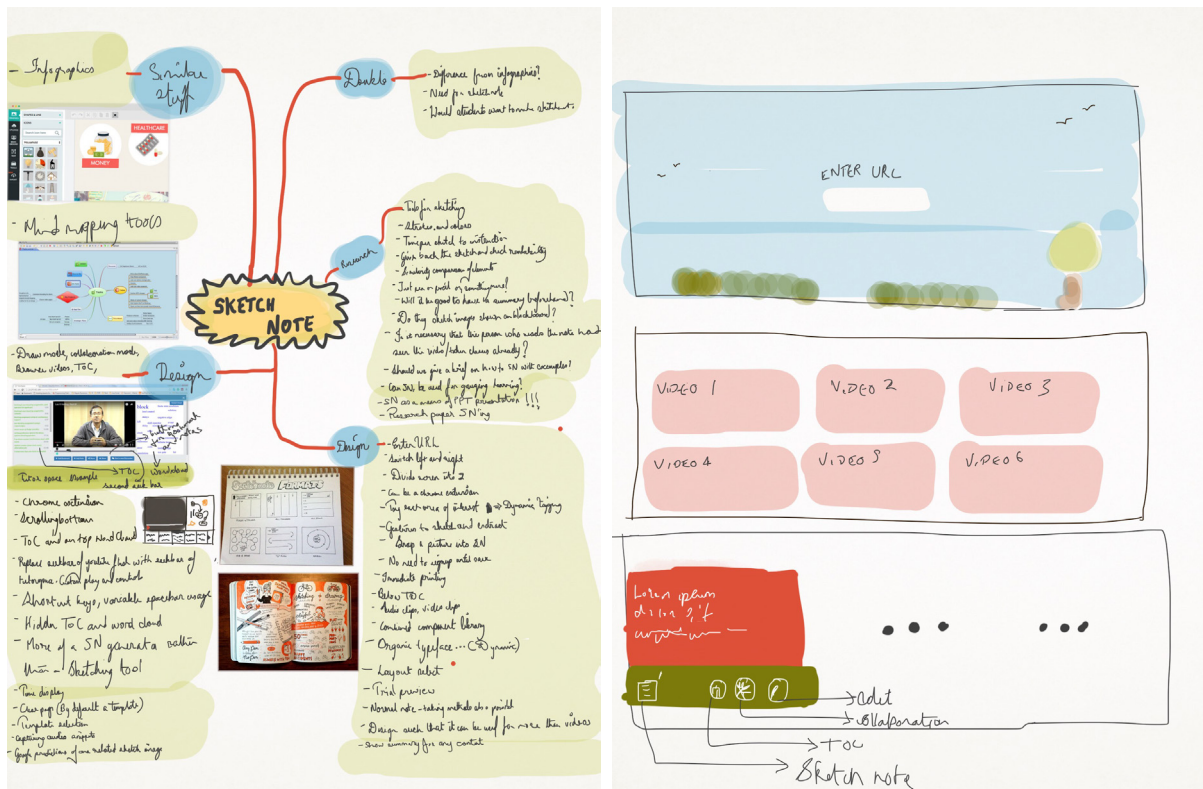 - Infographics
Similar
stuff
HEALTHCARE
MONEY
- Mind mapping tools
- Draw mode, collaboration mode,
Browse videos, TOC,
Design
block
Tutor space example
TOC
wordcloud
second seek bar
- Chrome extension
- Scrolling bottom
- TOC and on top Word Cloud
- Replace seekbar of youtube with seekbar of
play and controls
- Shortcut keys, variable spacebar usage
- Hidden TOC and word cloud
- More of a SN generator rather
than - Sketching tool
- Time display
- Clear page (By default a template)
- Template selection
- Capturing audio snippets
- Graph predictions of one related sketch image
SKETCH
NOTE
Doubts
- Difference from infographics?
- Need for sketchnote
- Would students want to make sketchnotes
Research
- Tools for sketching
- Strokes, and colors
- Give back the sketch and check readability
- Similarity comparison of elements
- Just pen or pencil or something more?
- Will it be good to have a summary beforehand?
- Do they sketch images shown on blackboard?
- Is it necessary that the person who reads the note had
seen the video/taken classes already?
- Should we give a brief on how to SN with examples?
- Can SN be used for gauging learning?
- SN as a means of PPT presentation!!!
- Research paper SNing
Design
- Enter URL
- Switch left and right
- Divide screen into 2
- Can be a chrome extension
- Tag each area of interest → Dynamic Tagging
- Gestures to sketch and interact
- Snap a picture into SN
- No need to signup until save
- Immediate printing
- Below TOC
- Audio clips, video clips
- Combined component library
- Organic typeface... (Dynamic)
- Layout select
- Trial preview
- Normal note-taking methods also possible
- Design such that it can be used for more than videos
- Show summary for any content
FORMATS
ENTER URL
VIDEO 1
VIDEO 2
VIDEO 3
VIDEO 4
VIDEO 5
VIDEO 6
Lorem ipsum
Edit
Collaboration
TOC
Sketch note